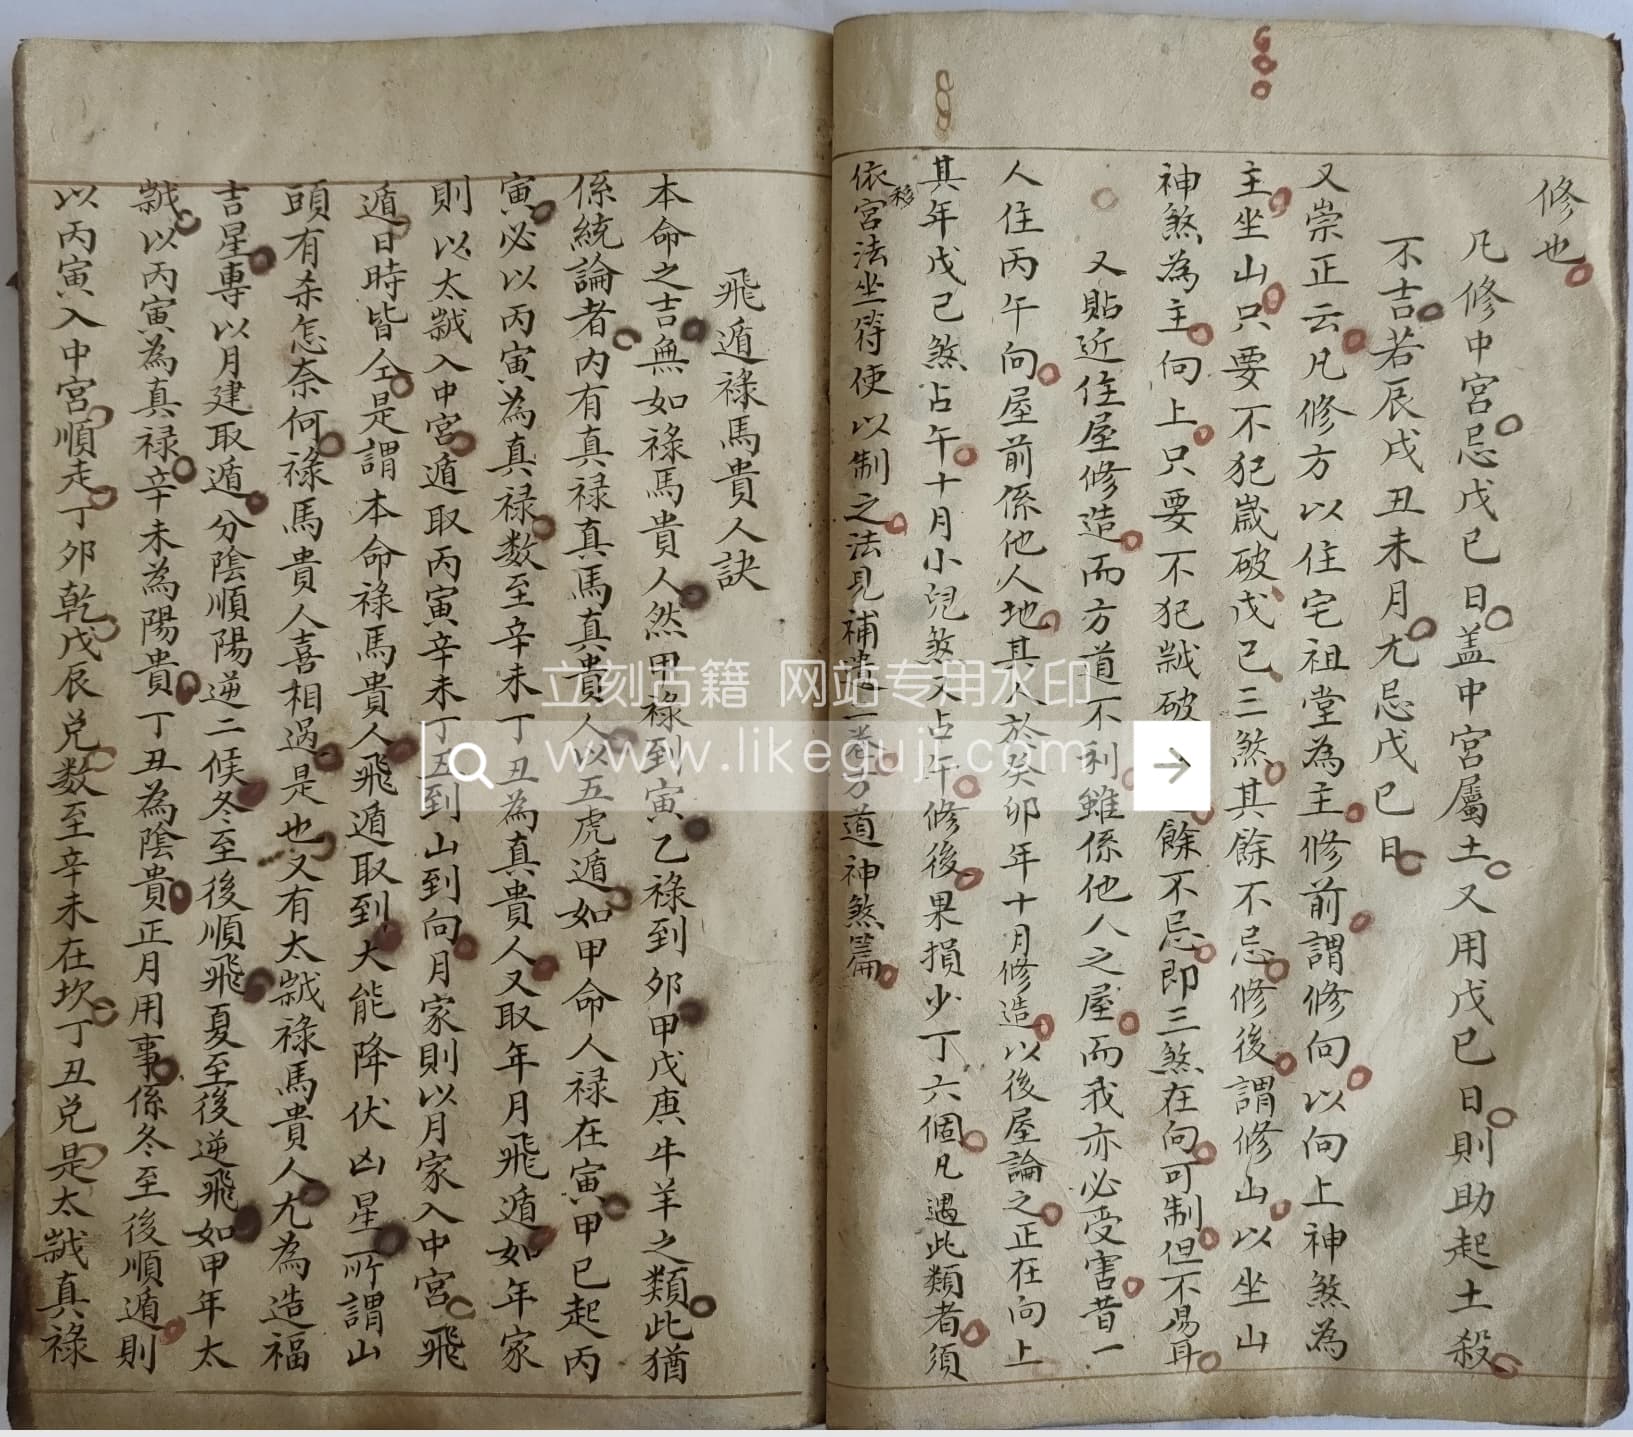 修也
凡修中宮忌戊己日盖中宮屬土又用戊己日則助起土殺
不吉若辰戌丑未月尤忌戊己日
又崇正云凡修方以住宅祖堂為主修前謂修向以向上神煞為
主坐山只要不犯嵗破戊己三煞其餘不忌修後謂修山以坐山
神煞為主向上只要不犯嵗破餘不忌即三煞在向可制但不易耳
又貼近住屋修造而方道不利雖係他人之屋而我亦必受害昔一
人住丙午向屋前係他人地其人於癸卯年十月修造以後屋論之正在向上
其年戊己煞占午十月小兒煞又占午修後果損少丁六個凡遇此類者須
依移宮法坐符使以制之法見補遺一卷方道神煞篇
飛遁祿馬貴人訣
本命之吉無如祿馬貴人然甲祿到寅乙祿到卯甲戊庚牛羊之類此猶
係統論者内有真祿真馬真貴人以五虎遁如甲命人祿在寅甲己起丙
寅必以丙寅為真祿数至辛未丁丑為真貴人又取年月飛遁如年家
則以太嵗入中宮遁取丙寅辛未丁丑到山到向月家則以月家入中宮飛
遁日時皆仝是謂本命祿馬貴人飛遁取到大能降伏凶星所謂山
頭有杀怎奈何祿馬貴人喜相過是也又有太嵗祿馬貴人尤為造福
吉星專以月建取遁分陰順陽逆二候冬至後順飛夏至後逆飛如甲年太
嵗以丙寅為真祿辛未為陽貴丁丑為陰貴正月用事係冬至後順遁則
以丙寅入中宮順走丁卯乾戊辰兌数至辛未在坎丁丑兌是太嵗真祿
立刻古籍 网站专用水印
www.likeguji.com